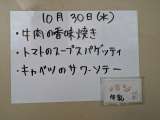 10月30日(水)
・牛肉の香味焼き
・トマトのスープスパゲッティ
・キャベツのサワーソテー